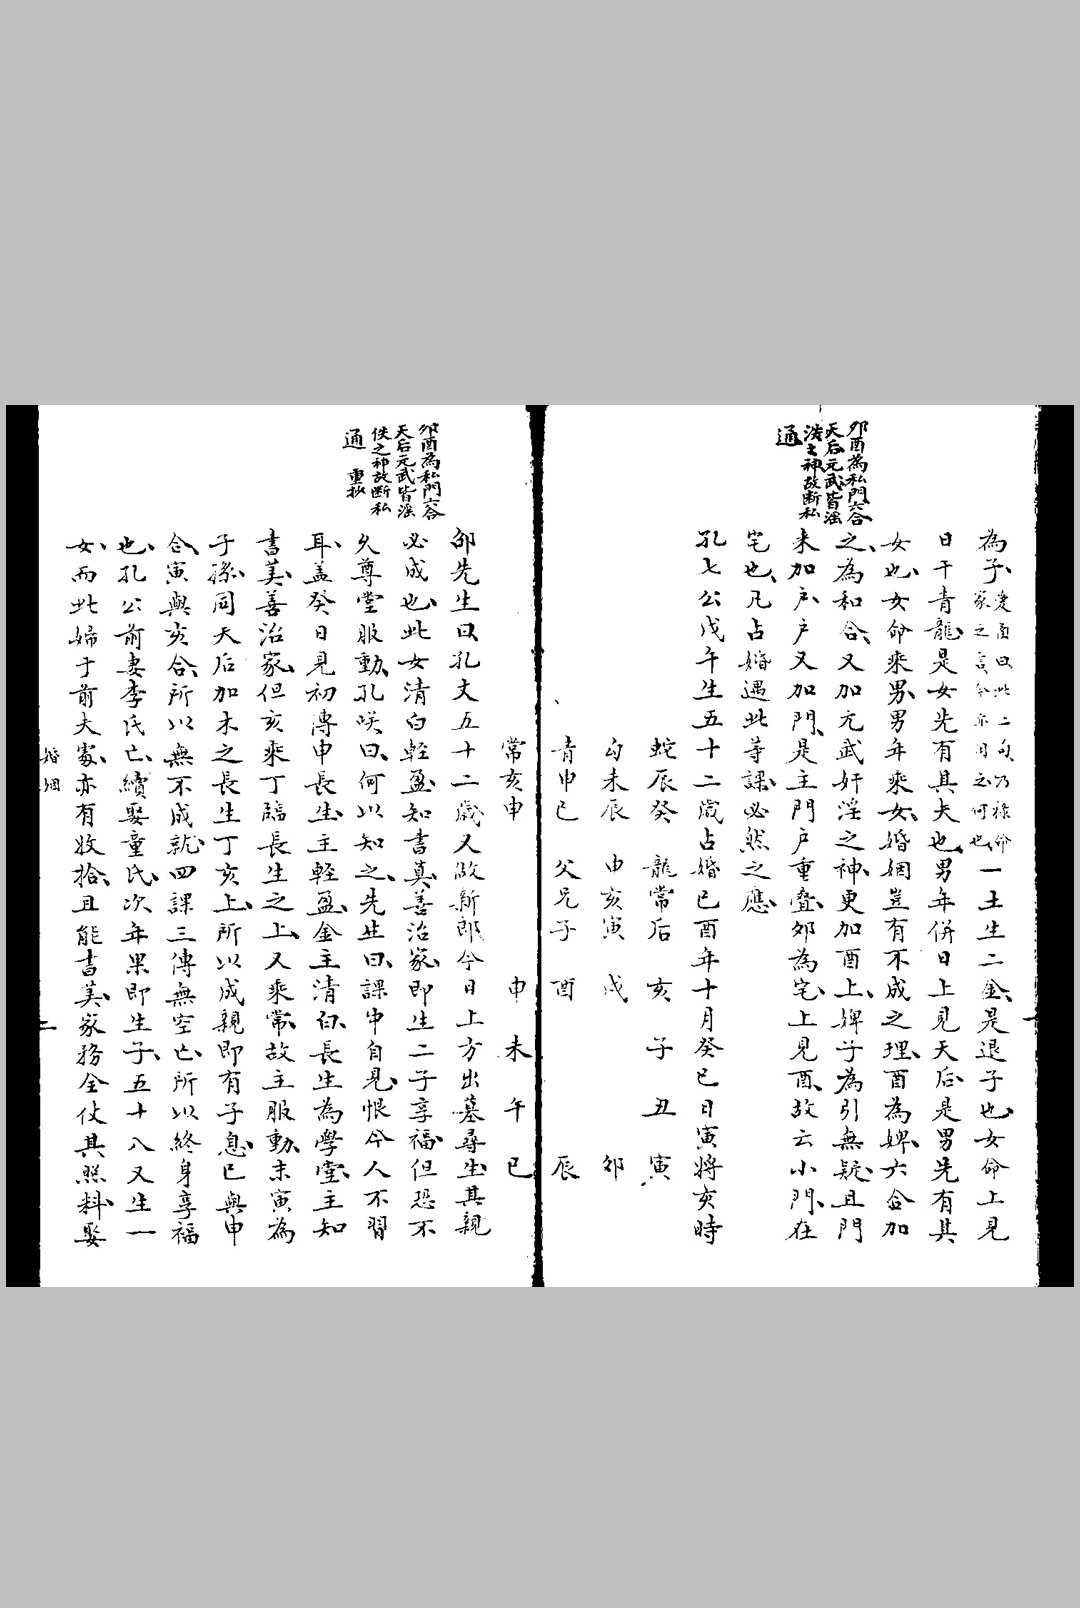 卯酉為私門六合
天后元武皆淫
泆之神故断私
通
為子愛函曰此二句乃祿命家之言今亦用之何也一土生二金是退子也女命上見
日干青龍是女先有其夫也男年併日上見天后是男先有其
女也女命乘男男年乘女婚姻豈有不成之理酉為婢六合加
之為和合又加元武奸淫之神更加酉上婢子為引無疑且門
来加戶戶又加門是主門戶重叠卯為宅上見酉故云小門在
宅也凡占婚遇此等課必然之應
孔七公戊午生五十二歲占婚己酉年十月癸巳日寅將亥時
蛇辰癸 龍常后 亥子丑寅
勾未辰 申亥寅 戌 卯
青申巳 父兄子 酉 辰
常亥申 申未午巳
卯酉為私門六合
天后元武皆淫
佚之神故断私
通 重抄
邵先生曰孔丈五十二歲又做新郎今日上方出墓尋生其親
必成也此女清白輕盈知書真善治家即生二子享福但恐不
久尊堂服動孔咲曰何以知之先生曰課中自見恨今人不習
耳盖癸日見初傳申長生主輕盈金主清白長生為學堂主知
書美善治家但亥乘丁臨長生之上又乘常故主服動末寅為
子孫同天后加木之長生丁亥上所以成親即有子息巳與申
合寅與亥合所以無不成就四課三傳無空亡所以終身享福
也孔公前妻李氏亡續娶童氏次年果即生子五十八又生一
女而此婦于前夫家亦有收拾且能書美家務全仗其照料娶
婚姻
二